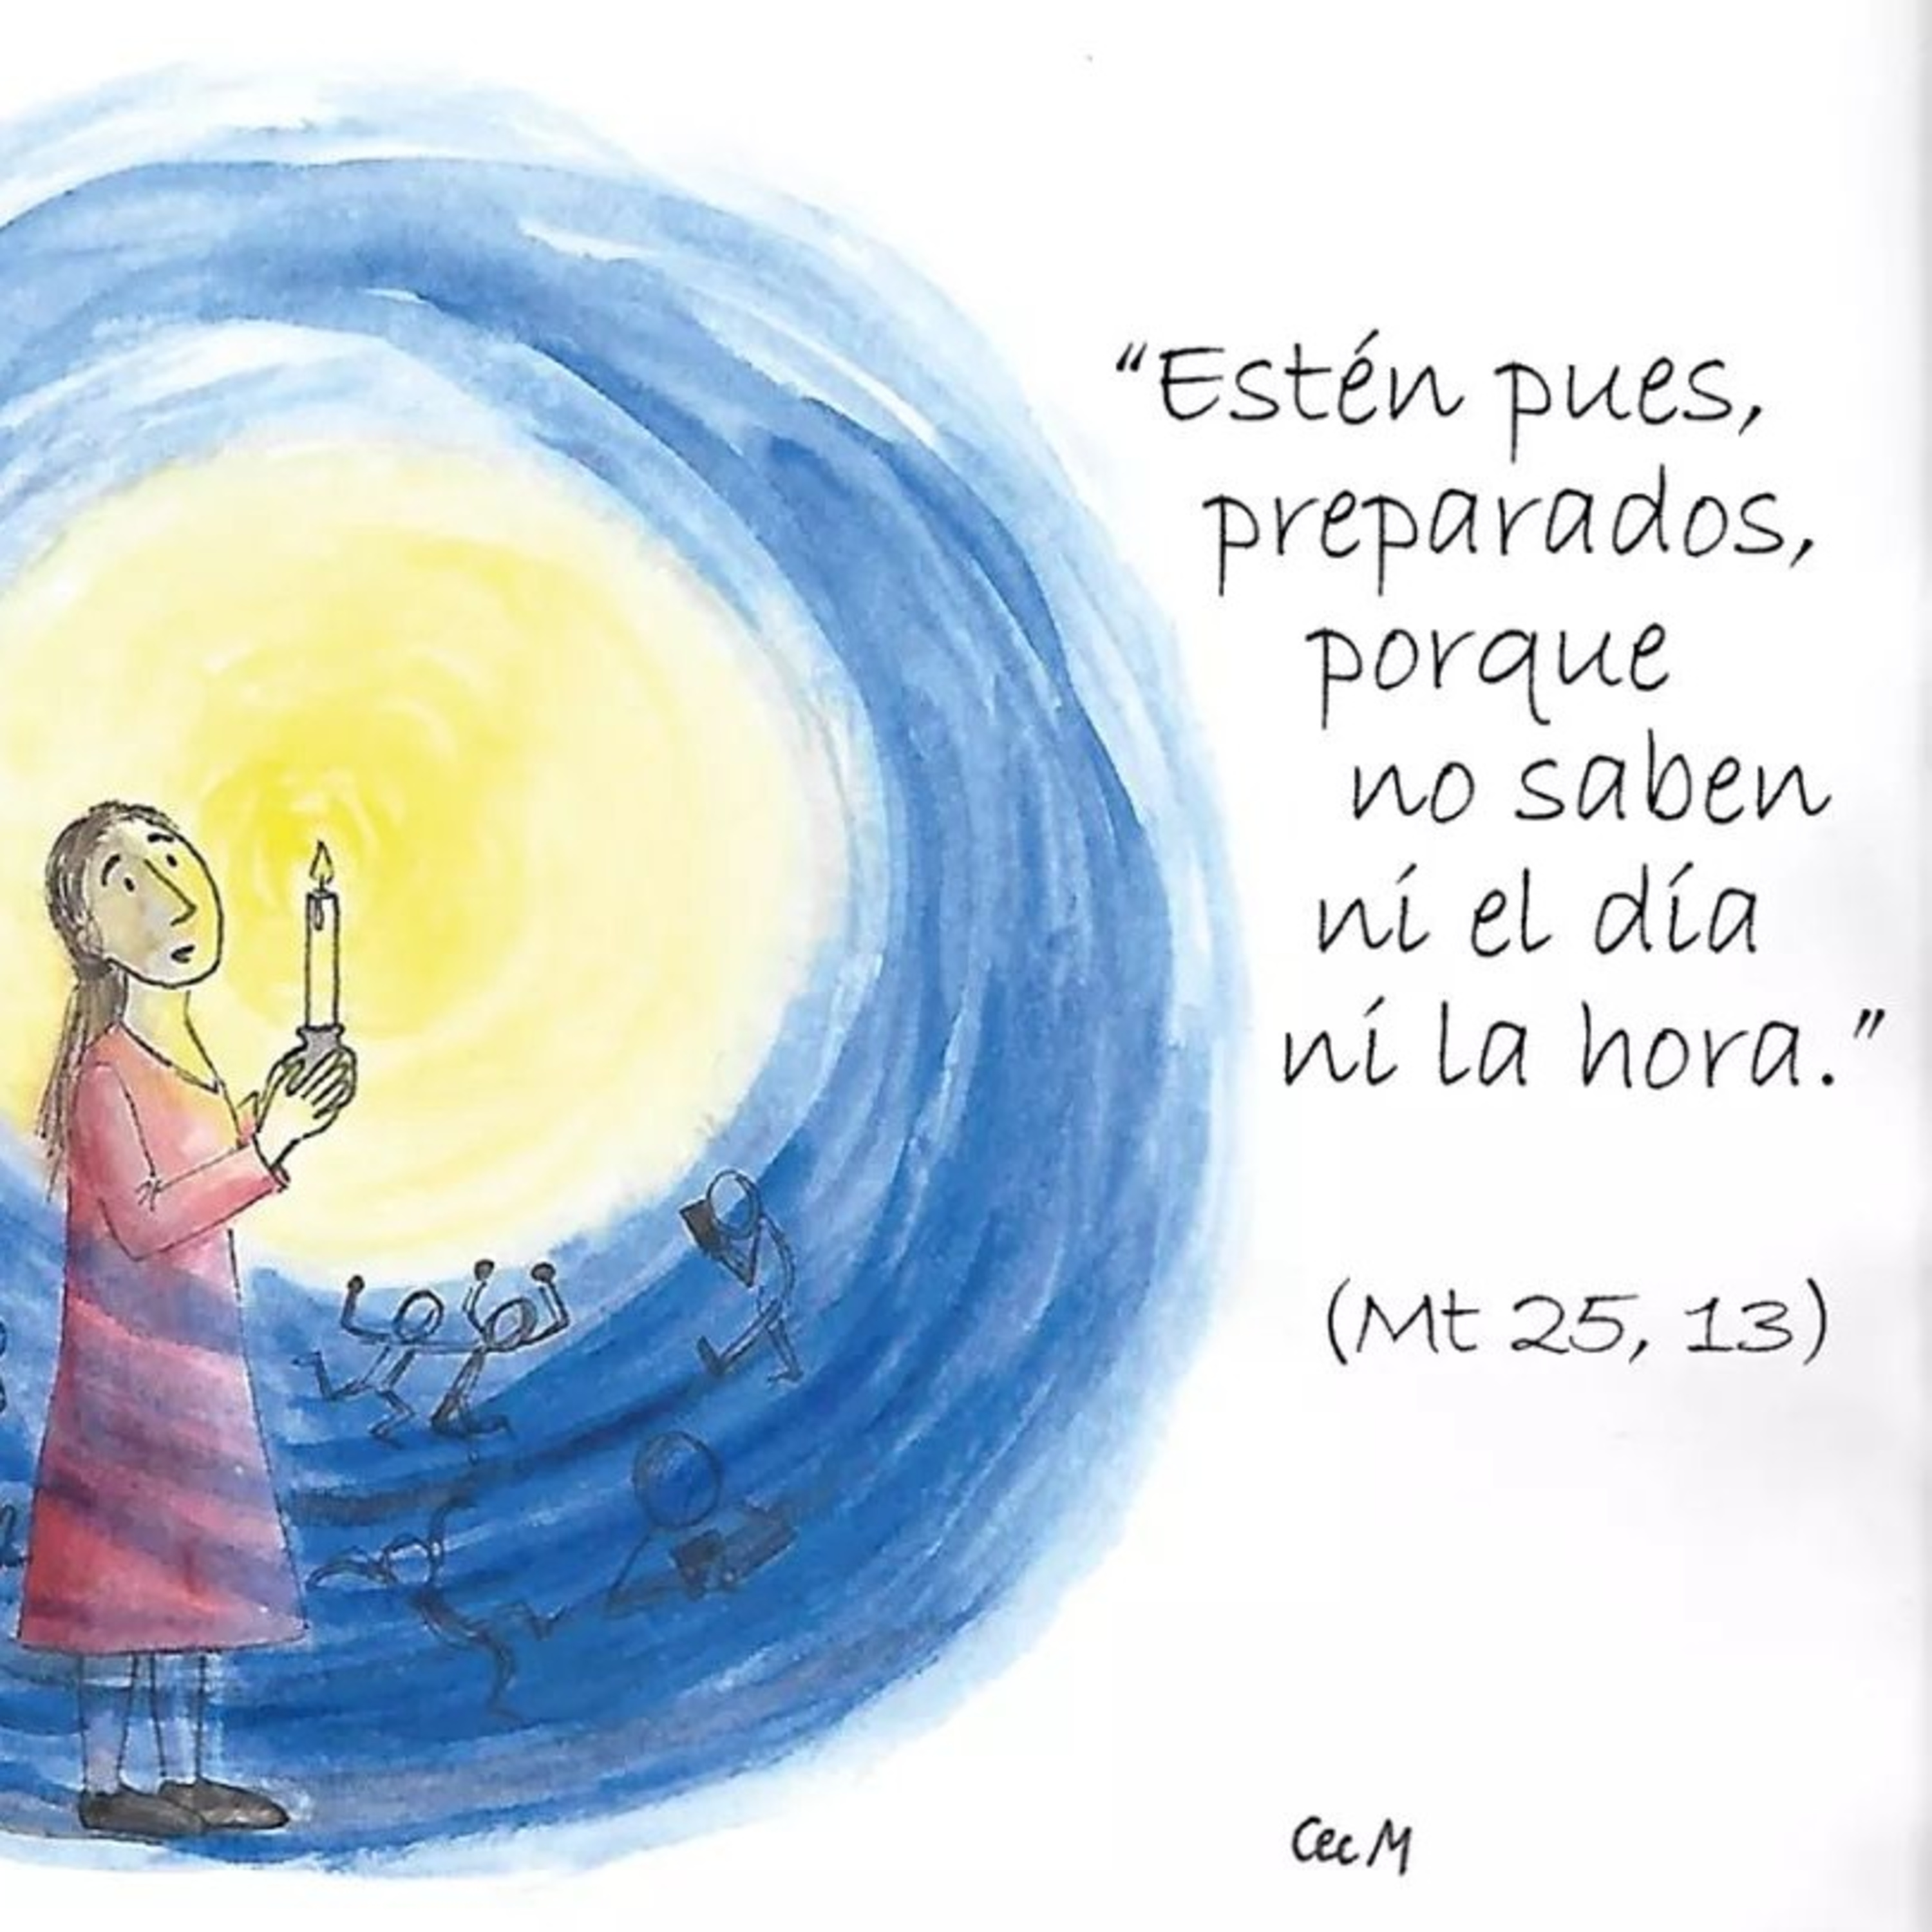 “Estén pues,
preparados,
porque
no saben
ni el día
ni la hora.”
(Mt 25, 13)
Cec M